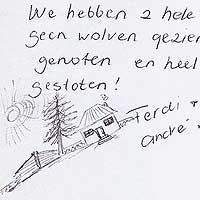 We hebben 2 hele
geen wolven gezien
genoten en heel
gesloten!
Ferdi +
andré